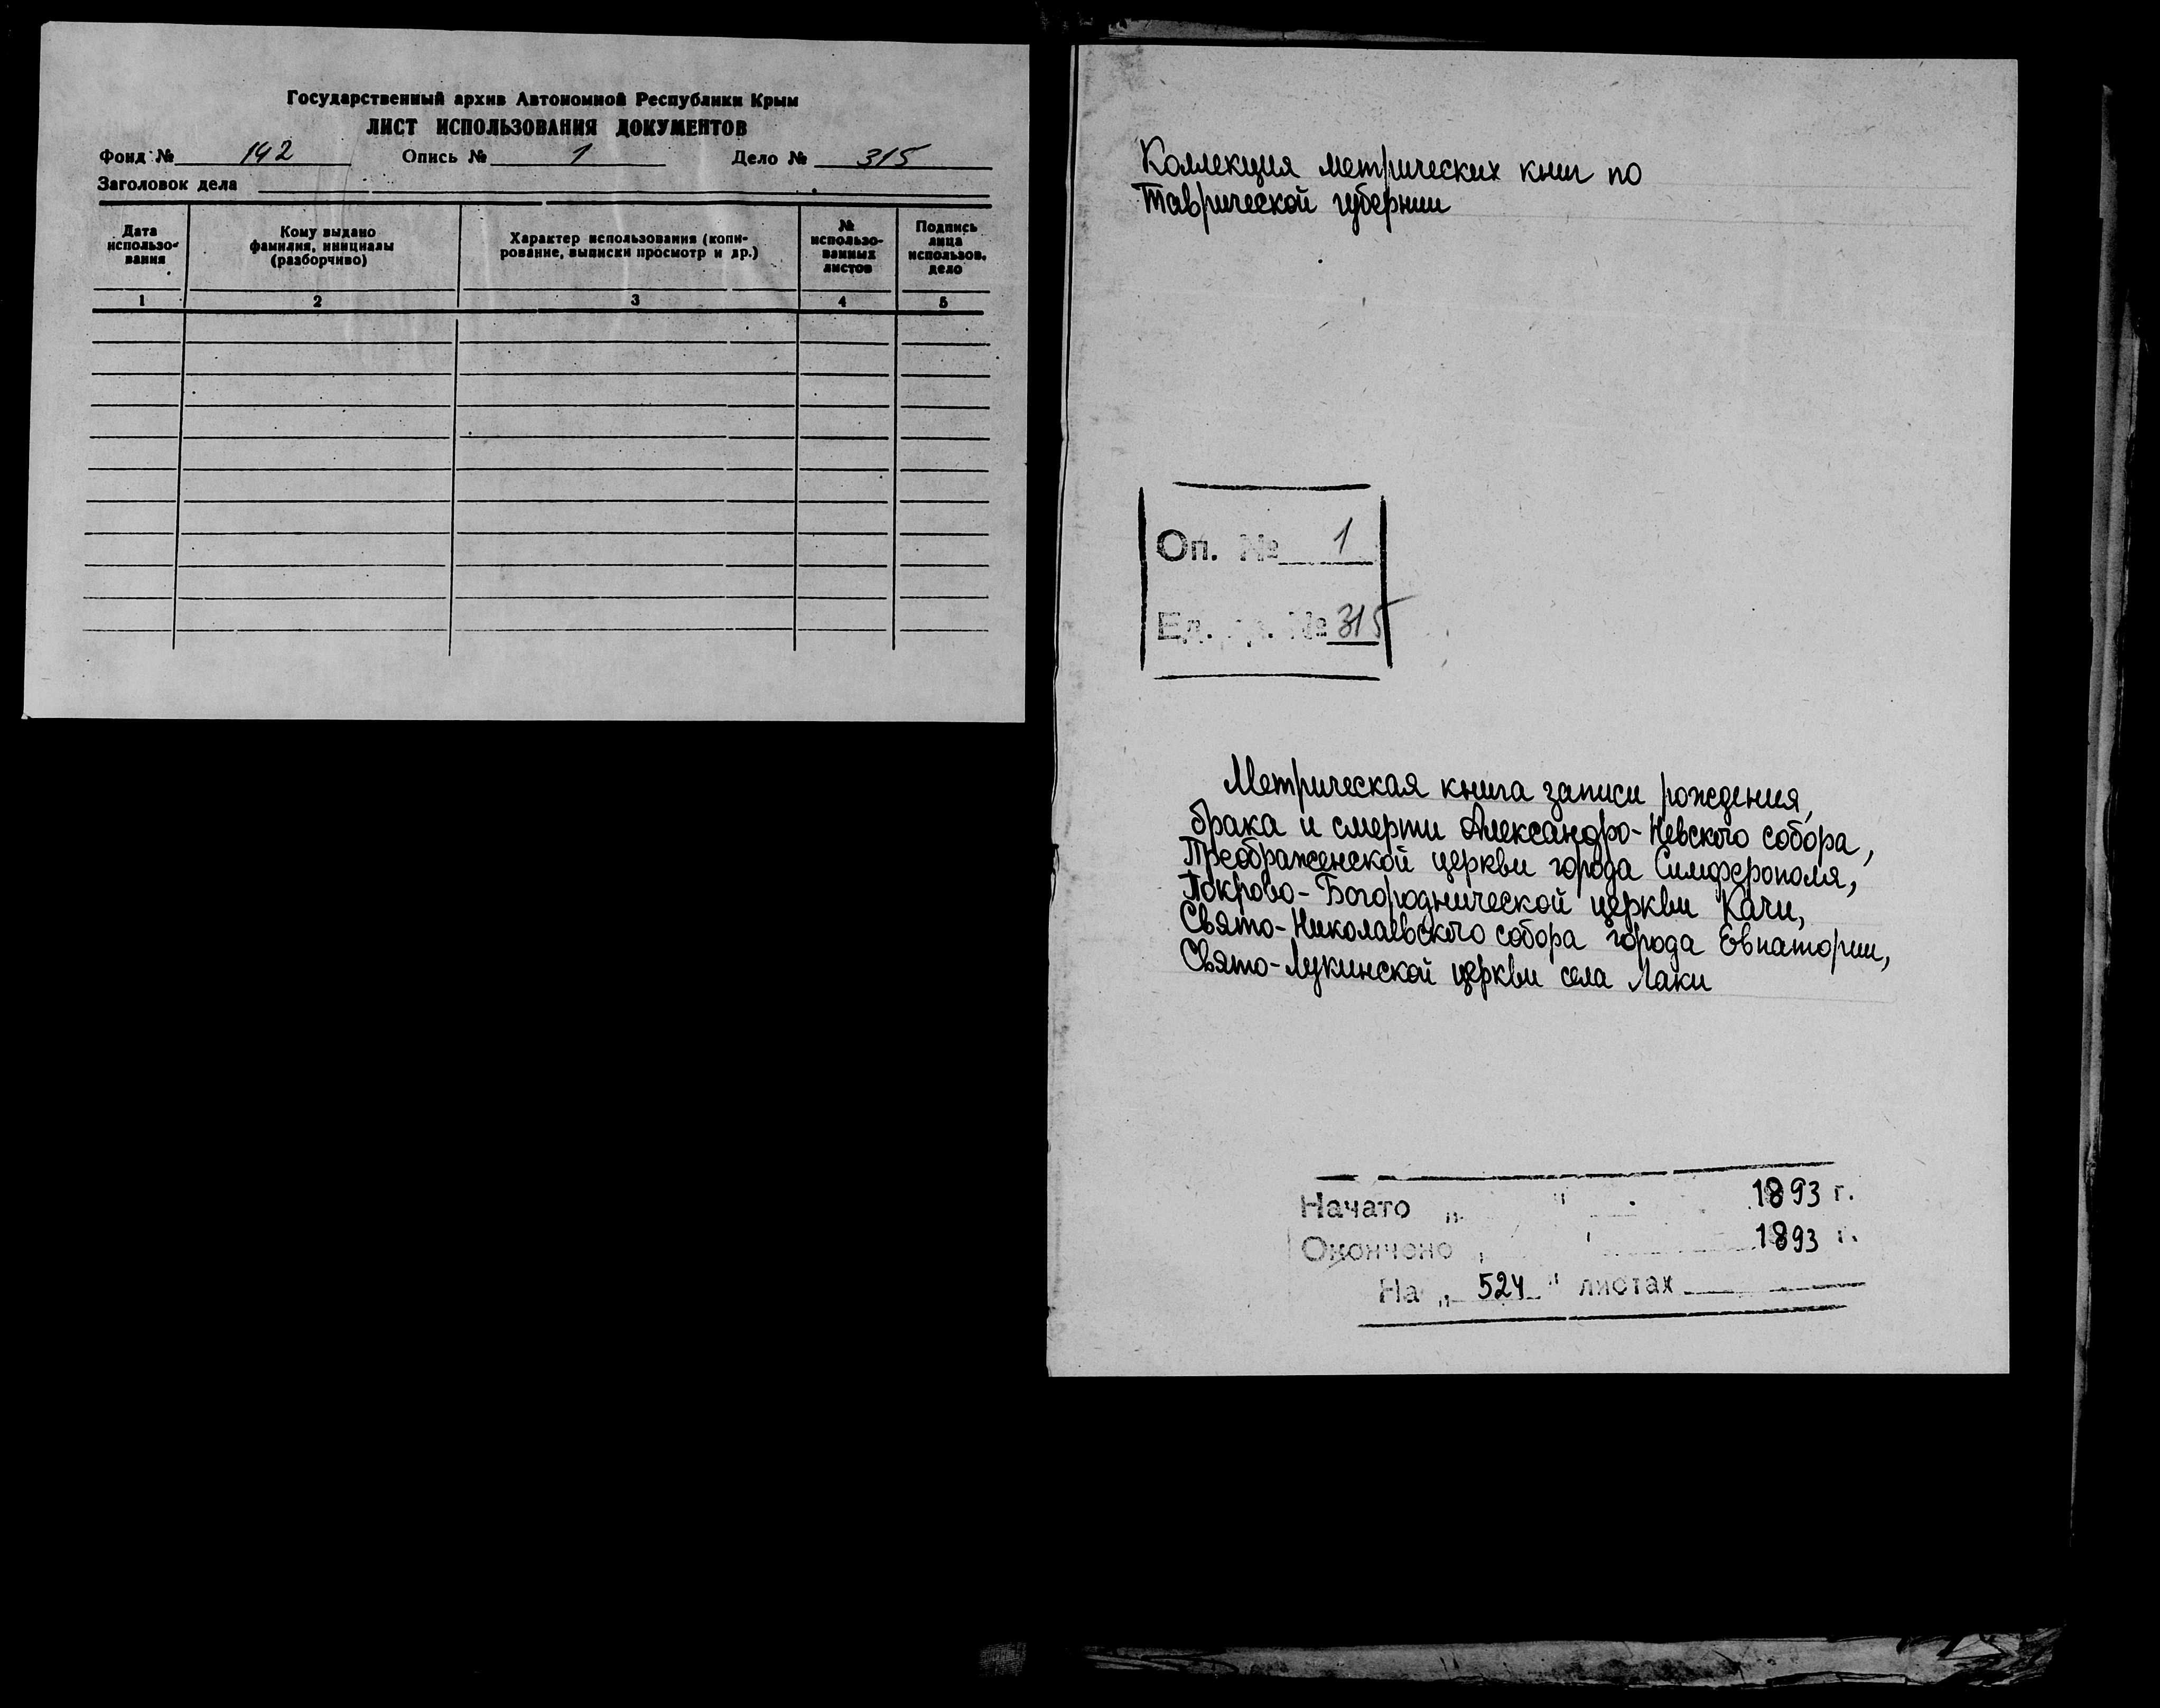 Государственный архив Автономной Республики Крым
ЛИСТ ИСПОЛЬЗОВАНИЯ ДОКУМЕНТОВ
Фонд № 142 Опись № 1 Дело № 315
Заголовок дела
Дата использо-вания
Кому выдано фамилия, инициалы (разборчиво)
Характер использования (копи-рование, выписки просмотр и др.)
№ использо-ванных листов
Подпись лица использов. дело
1 2 3 4 5
Коллекция метрических книг по
Таврической губернии
Оп. № 1
Ед. № 315
Метрическая книга записи рождения,
брака и смерти Александро-Невского собора,
Преображенской церкви города Симферополя,
Покрово-Богороднической церкви Качи,
Свято-Николаевского собора города Евпатории,
Свято-Лукинской церкви села Лаки
Начато „ " 1893 г.
Окончено „ " 1893 г.
На „ 524 " листах